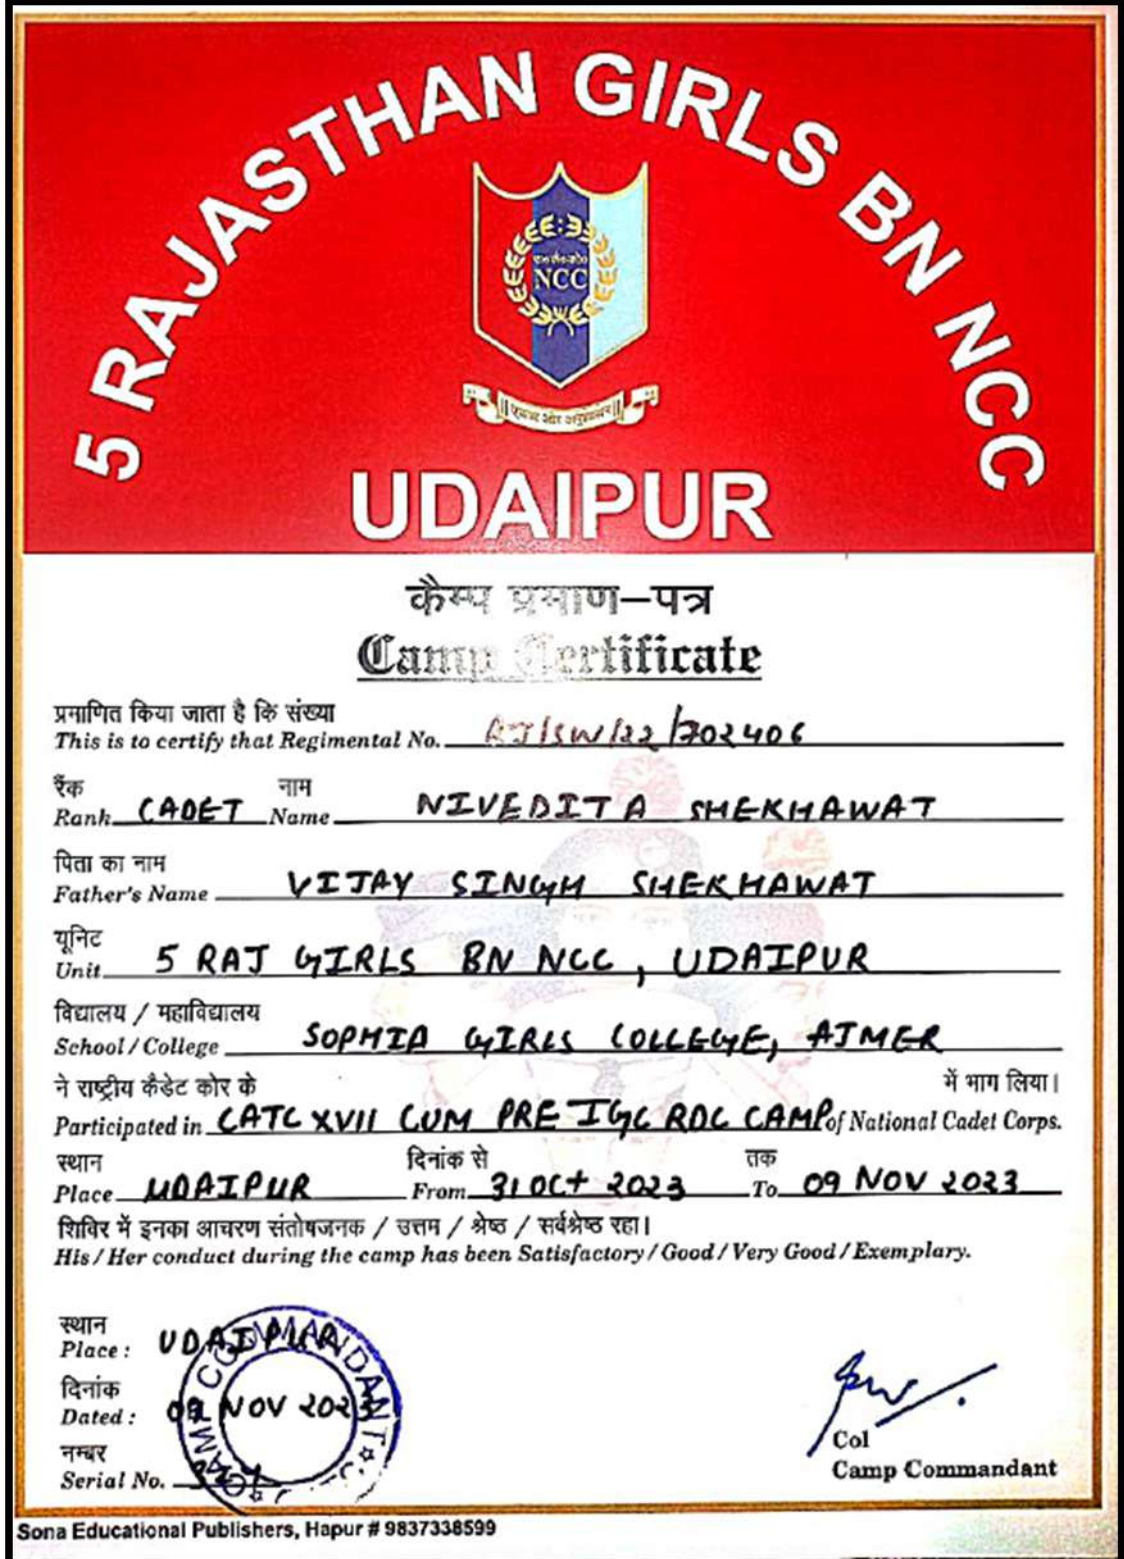 5 RAJASTHAN GIRLS BN NCC
NCC
एकता और अनुशासन
UDAIPUR
कैम्प प्रमाण–पत्र
Camp Certificate
प्रमाणित किया जाता है कि संख्या
This is to certify that Regimental No. RJ/SW/22/702406
रैंक नाम
Rank CADET Name NIVEDITA SHEKHAWAT
पिता का नाम
Father's Name VIJAY SINGH SHEKHAWAT
यूनिट
Unit 5 RAJ GIRLS BN NCC, UDAIPUR
विद्यालय / महाविद्यालय
School / College SOPHIA GIRLS COLLEGE, AJMER
ने राष्ट्रीय कैडेट कोर के में भाग लिया।
Participated in CATC XVII CUM PRE IGC RDC CAMP of National Cadet Corps.
स्थान दिनांक से तक
Place UDAIPUR From 31 Oct 2023 To 09 NOV 2023
शिविर में इनका आचरण संतोषजनक / उत्तम / श्रेष्ठ / सर्वश्रेष्ठ रहा।
His / Her conduct during the camp has been Satisfactory / Good / Very Good / Exemplary.
स्थान
Place : UDAIPUR
CAMP COMMANDANT
दिनांक
Dated : 09 NOV 2023
नम्बर
Serial No.
Col
Camp Commandant
Sona Educational Publishers, Hapur # 9837338599